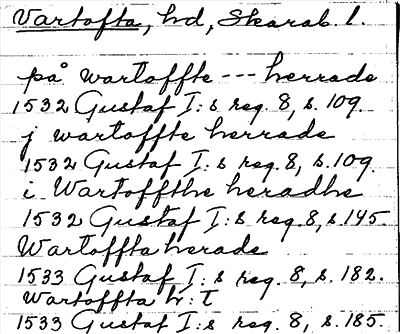 Vartofta, hd, Skarab. l.
på wartoffte --- herrade
1532 Gustaf I:s reg. 8, s. 109.
j wartoffte herrade
1532 Gustaf I:s reg. 8, s. 109.
i Wartoffthe heradhe
1532 Gustaf I:s reg. 8, s. 145.
Wartoffta herade
1533 Gustaf I:s reg. 8, s. 182.
Wartoffta h:t
1533 Gustaf I:s reg. 8, s. 185.